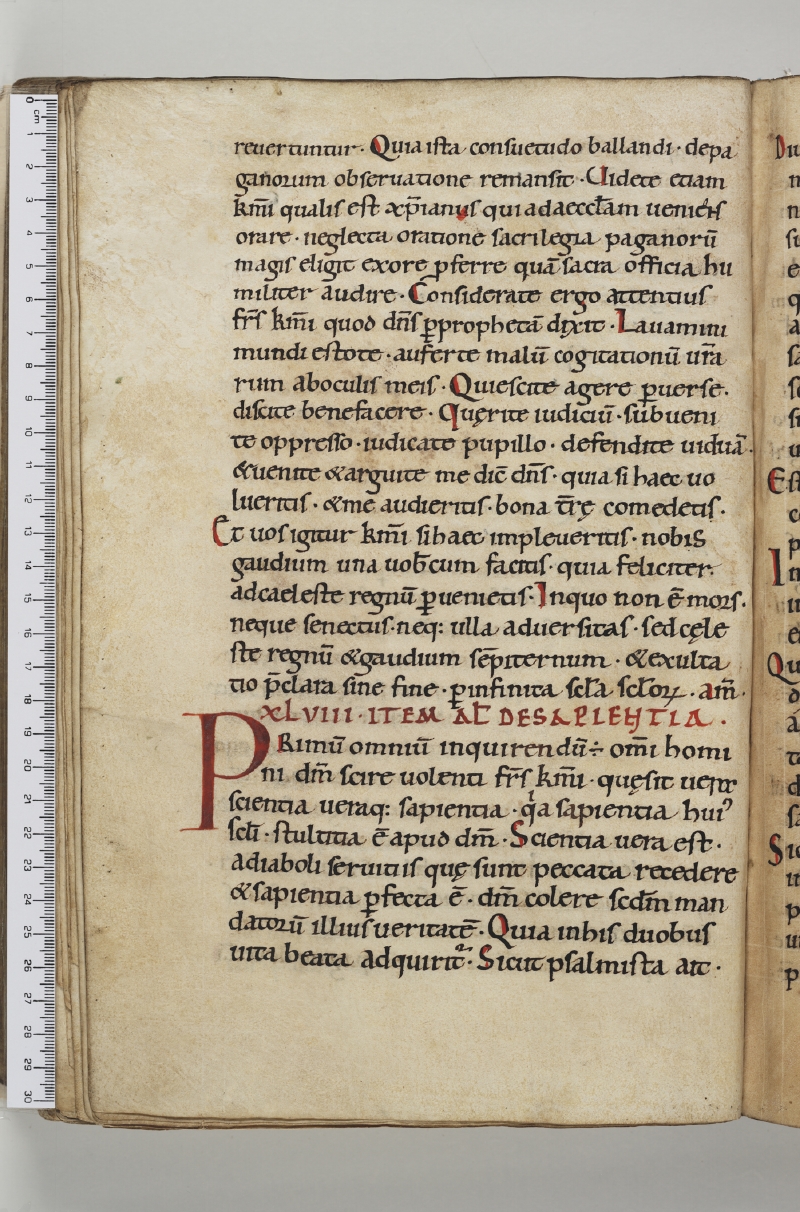 reuertuntur · Quia ista consuetudo ballandi · depa
ganorum obseruatione remansit · Uidete etiam
km̅i qualis est xp̅ianus qui ad aeccl̅am ueniens
orare · neglecta oratione sacrilegia paganorū
magis eligit exore ꝓferre quā sacra officia hu
militer audire · Considerate ergo attentius
fr̅s km̅i quod dn̅s ꝑprophetā dixit · Lauamini
mundi estote · auferte malū cogitationū ur̅a
rum aboculis meis · Quiescite agere ꝑuerse ·
discite benefacere · Quęrite iudiciū · subueni
te oppresso · iudicate pupillo · defendite uiduā ·
&uenite &arguite me dic̅ dn̅s · quia si haec uo
lueritis · &me audieritis · bona tr̅ę comedetis ·
Et uos igitur km̅i sihaec impleueritis · nobis
gaudium una uob̅cum facitis · quia feliciter
adcaeleste regnū ꝑuenietis · Inquo non ē mors ·
neque senectus · neq: ulla aduersitas · sed cęle
ste regnū &gaudium sēpiternum · &exulta
tio p̅clara sine fine · ꝑinfinita scl̅a scl̅oꝝ · am̅ ·
XLVIII · ITEM AL̅ DESAPIENTIA ·
PRimū omniū inquirendū ÷ om̅i homi
ni dm̅ scire uolenti fr̅s km̅i · quęsit uera
scientia ueraq: sapientia · qa sapientia hui᾽
scl̅i · stultitia ē apud dm̅ · Scientia uera est ·
adiaboli seruitiis quę sunt peccata recedere
&sapientia ꝑfecta ē · dm̅ colere scdm̅ man
datorū illius ueritatē · Quia inhis duobus
uita beata adquirit᷑ · Sicut psalmista ait ·